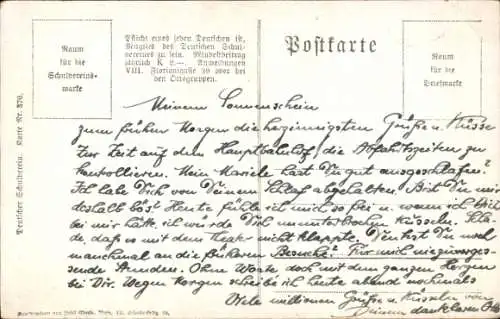 Raum
für die
Schulvereins-
marke
Pflicht eines jeden Deutschen ist,
Mitglied des Deutschen Schul-
vereines zu sein. Mindestbeitrag
jährlich K 2.—. Anmeldungen
VIII. Florianigasse 39 oder bei
den Ortsgruppen.
Postkarte
Raum
für die
Briefmarke
Deutscher Schulverein. Karte Nr. 370.
Meinem Sonnenschein
zum frühen Morgen die herzinnigsten Grüße u. Küsse
Zur Zeit auf dem Hauptbahnhof, die Abfahrtszeiten zu
kontrollieren. Mein Mariele hast Du gut ausgeschlafen?
Ich habe Dich von Deinem Schlaf abgehalten. Bist Du mir
deshalb böse? Heute fühle ich mich so frei u. wenn ich Dich
bei mir hätte, ich würde Dich ununterbrochen küsseln. Scha-
de, daß es mit dem Theater nicht klappte. Denkst Du noch
manchmal an die früheren Besuche? Für mich nie zu verges-
sende Stunden. Ohne Worte doch mit dem ganzen Herzen
bei Dir. Wegen Morgen schreibe ich heute abend nochmals
Viele Millionen Grüße u. Küsseln von
Deinem dankbaren